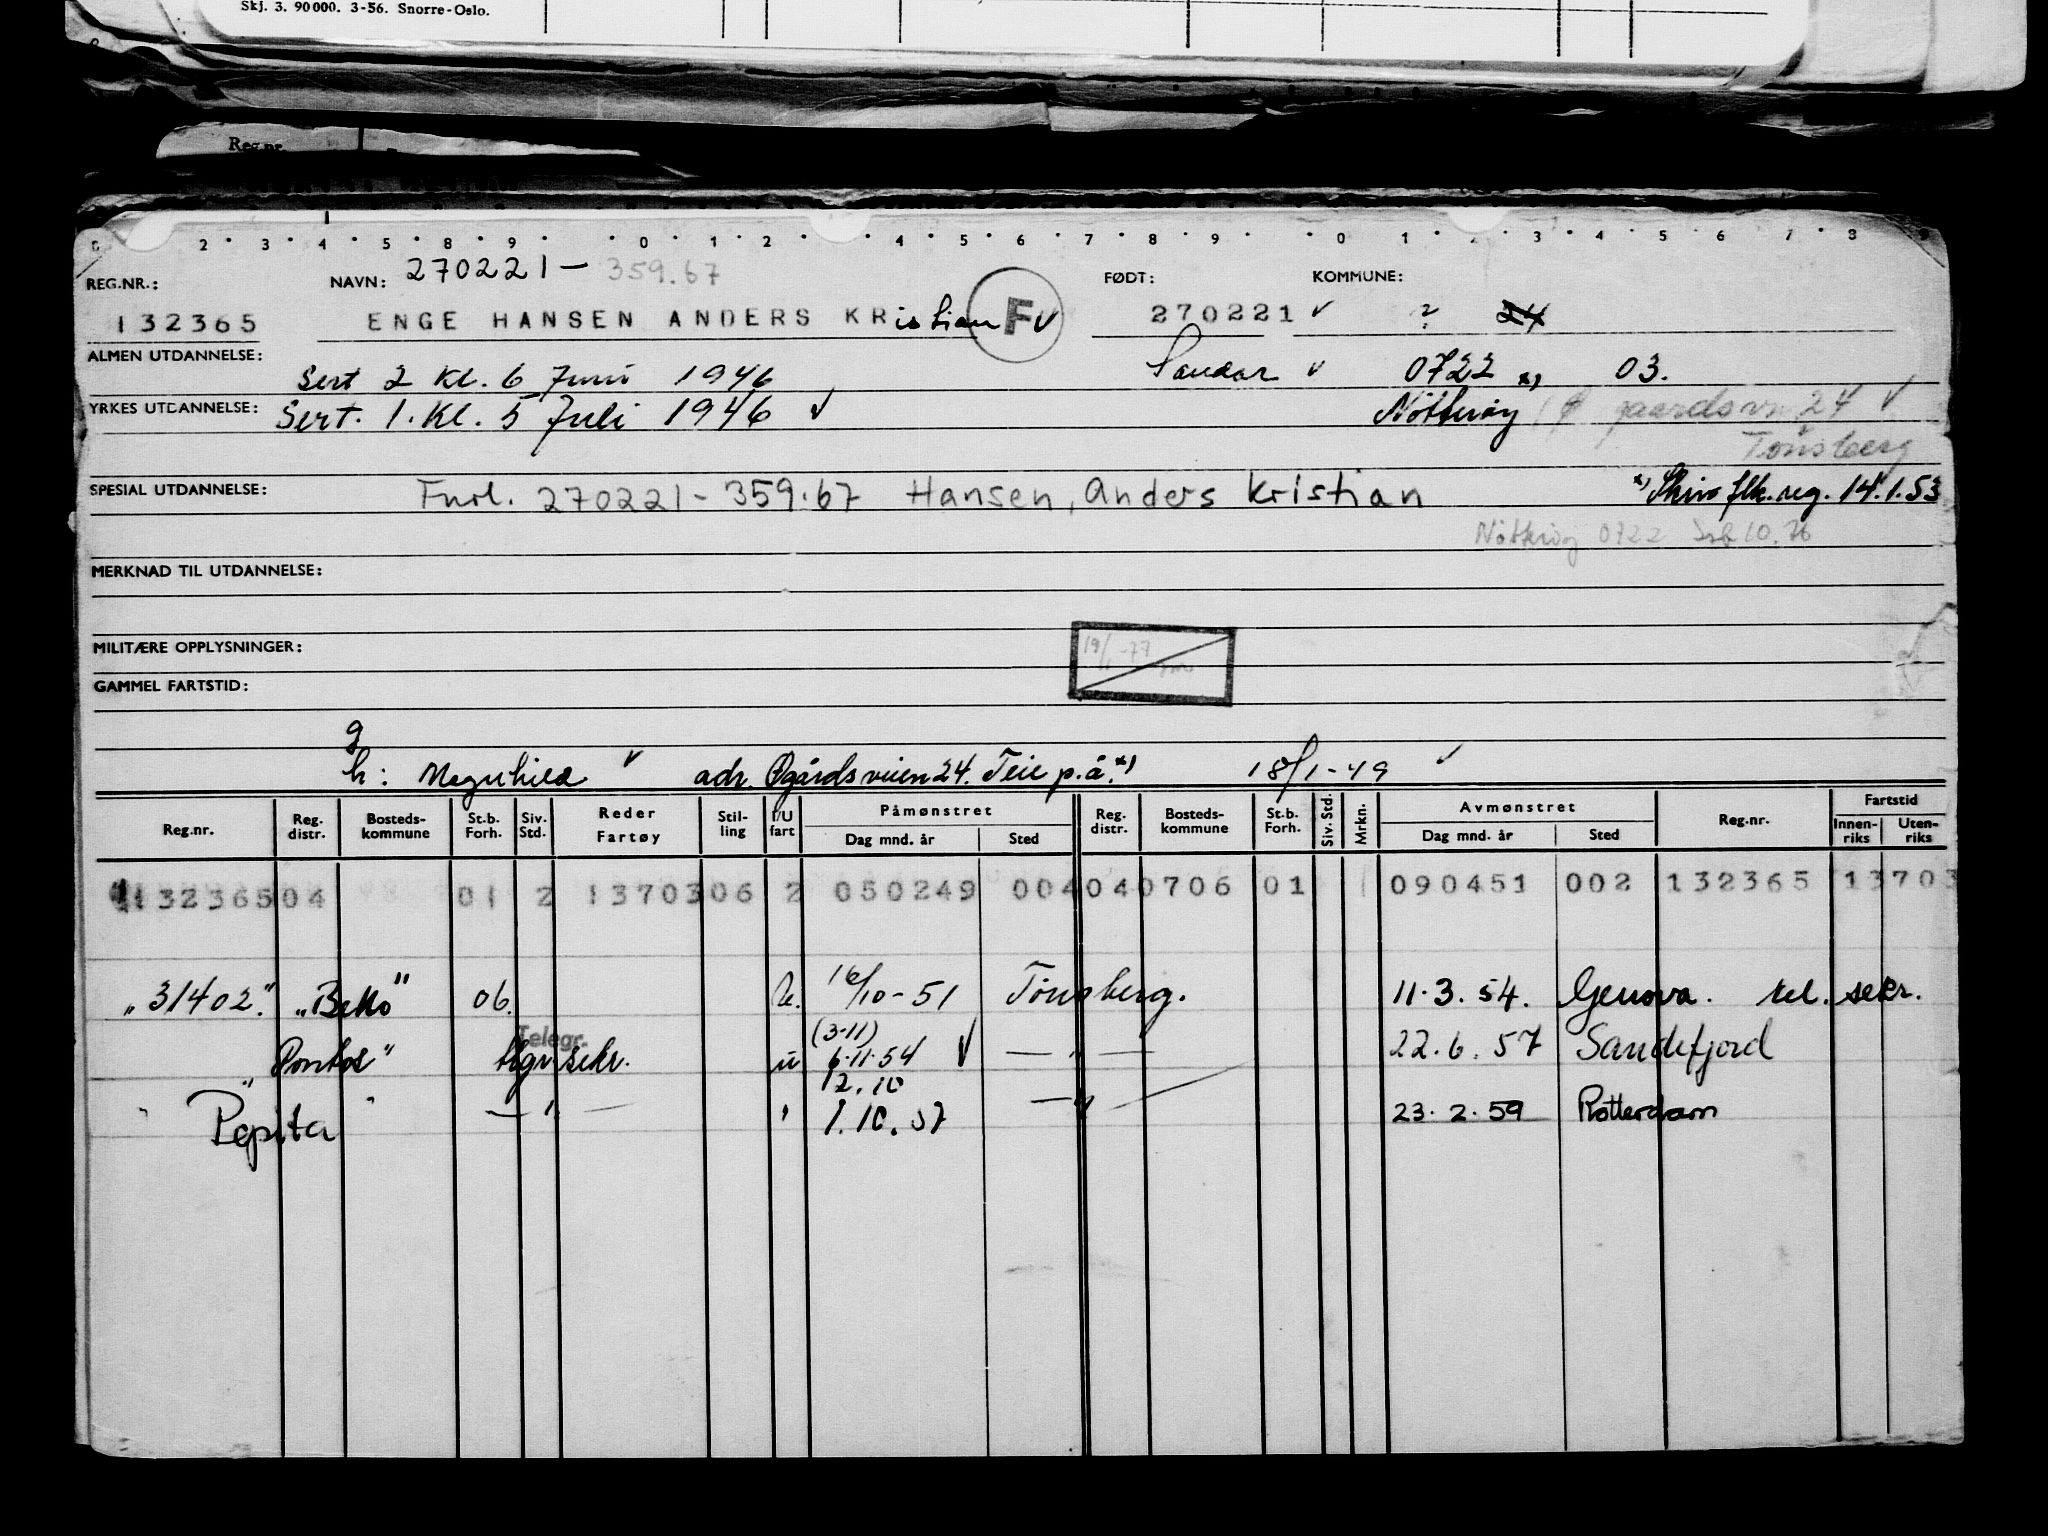 Skj. 3. 90000. 3-56. Snorre-Oslo.
Reg.nr.
2 3 4 5 8 9 4 0 1 2 4 5 6 7 8 9 0 1 2 3 4 5 6 7 8 9
REG.NR.: NAVN: 270221- 359.67 FØDT: KOMMUNE:
132365 ENGE HANSEN ANDERS KRistian F v 270221 v ? 24
ALMEN UTDANNELSE: Sert 2 Kl. 6 Juni 1946 Sandar v 0722 x) 03.
YRKES UTDANNELSE: Sert. 1. Kl. 5 Juli 1946 v Nøtterøy gaardsvn 24 v
Tønsberg
SPESIAL UTDANNELSE: Fnrl. 270221-359.67 Hansen, Anders Kristian x) Skriv flk.reg. 14.1.53
Nøtterøy 0722 10.76
MERKNAD TIL UTDANNELSE:
MILITÆRE OPPLYSNINGER: 19/1-77
GAMMEL FARTSTID:
g
h: Magnhild v adr. Øgårdsveien 24. Teie p.å. x) 18/1-49 v
Reg.nr. Reg. distr. Bosteds-kommune St.b. Forh. Siv. Std. Reder Fartøy Stil-ling I/U fart Påmønstret Dag mnd. år Sted Reg. distr. Bosteds-kommune St.b. Forh. Siv. Std. Mrkn. Avmønstret Dag mnd. år Sted Reg.nr. Fartstid Innen-riks Uten-riks
13236504 01 2 1370306 2 050249 004 040706 01 090451 002 132365 13703
"31402." "Bello" 06. U. 16/10-51 Tønsberg. 11.3.54. Genova. tel. sekr.
Telegr. (3-11)
"Pontos" tlgr sekr. u 6.11.54 v — " — 22.6.57 Sandefjord
12.10
" Pepita " — " — " 1.10.57 — " — 23.2.59 Rotterdam